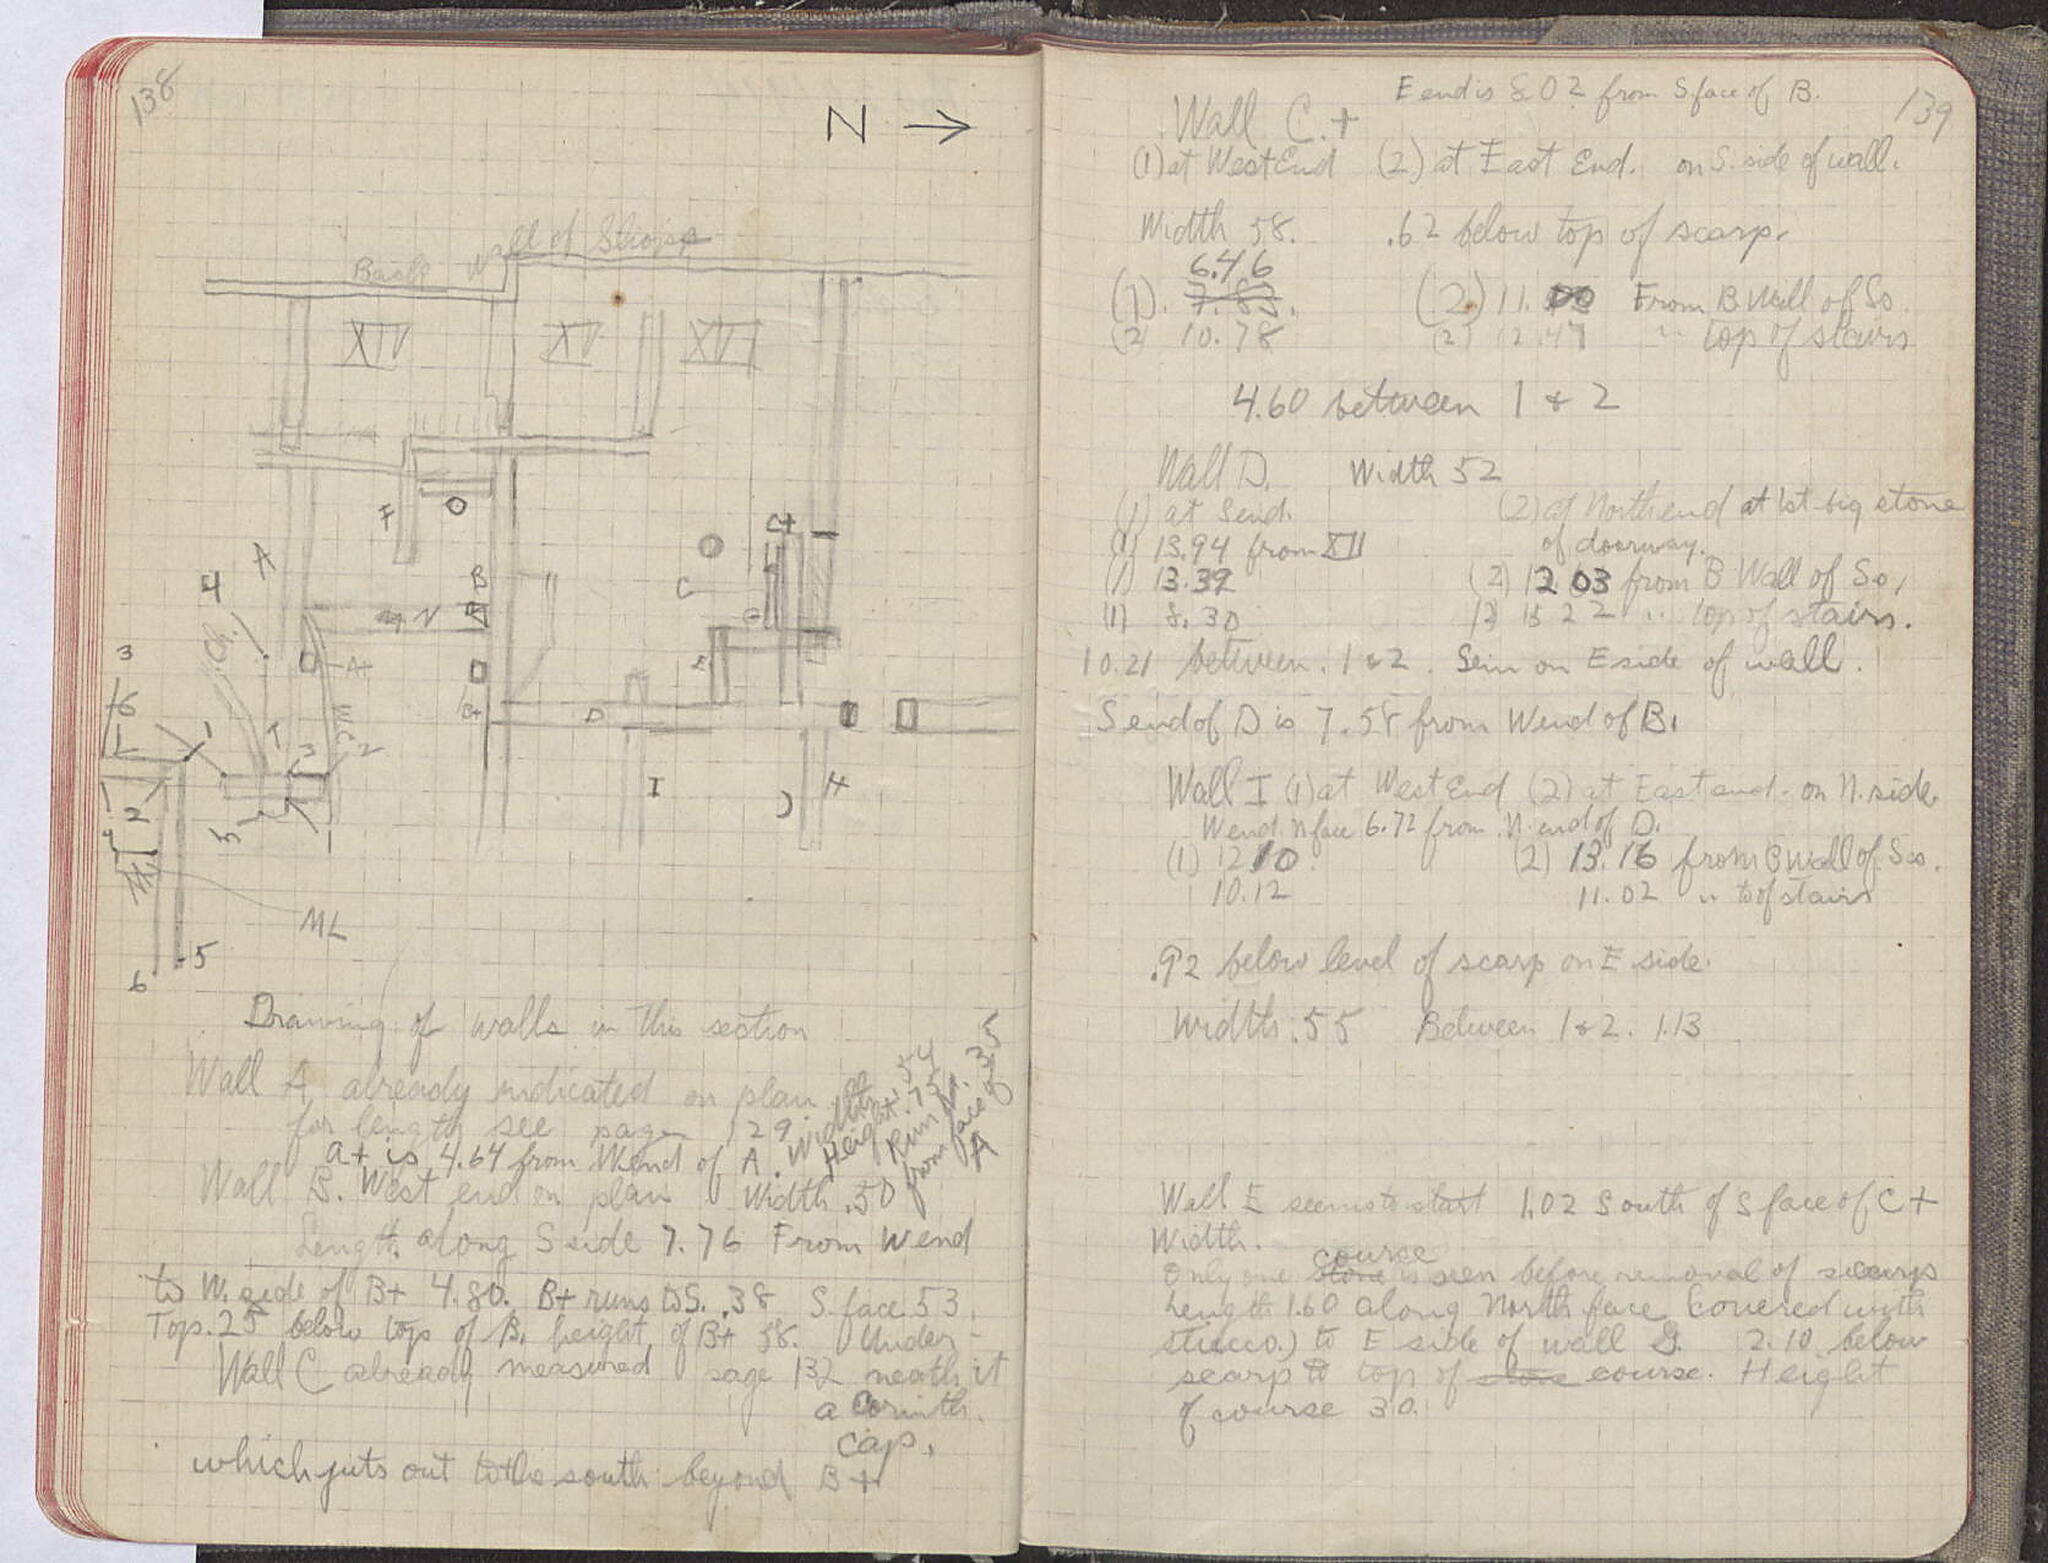 138
N →
Back Wall of Shops
XIV XV XVI
F
O
C+
A
B
4
C
G
N
Ch.
3
A+
E
6
W.C.
B+
D
1
1
3
2
2
I
J
H
3
ML
5
6
Drawing of walls in this section
Wall A already indicated on plan
for length see page 129. Width .54
Height .75
Run
from face of
A
.35
a+ is 4.64 from W end of A.
Wall B. West end on plan Width .50
Length along S side 7.76 From W end
to W. side of B+ 4.80. B+ runs to S. .38 S. face .53.
Top .25 below top of B. height of B+ 58. Under-
Wall C already measured page 132 neath it
a Corinth.
cap.
which juts out to the south beyond B+
139
E end is 8.02 from S. face of B.
Wall C.+
(1) at West End (2) at East End. on S. side of wall.
Width 58. .62 below top of scarp.
6.46
(1). 7.83. (2) 11. From B. Wall of So.
(2) 10.78 (2) 12.47 " top of stairs
4.60 between 1 & 2
Wall D. Width 52
(1) at S end. (2) at North end at 1st big stone
of doorway.
(1) 13.94 from XII
(1) 13.39 (2) 12 03 from B Wall of So.
(1) 8.30 (2) 15 22 " top of stairs.
10.21 between 1 & 2. on E side of wall.
S end of D is 7.58 from W end of B.
Wall I (1) at West End (2) at East end. on N. side.
W end. N face 6.72 from N. end of D.
(1) 12 10 (2) 13.16 from B Wall of So.
10.12 11.02 " to of stairs
.92 below level of scarp on E side.
Width .55 Between 1 & 2. 1.13
Wall E seems to start 1.02 South of S face of C+
Width.
course
Only one stone is seen before removal of scarp
Length 1.60 along North face (covered with
stucco.) to E side of wall G. 2.10 below
scarp to top of stone course. Height
of course 30.